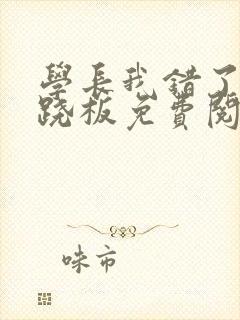 學長我錯了
蹺板免費閱
味市